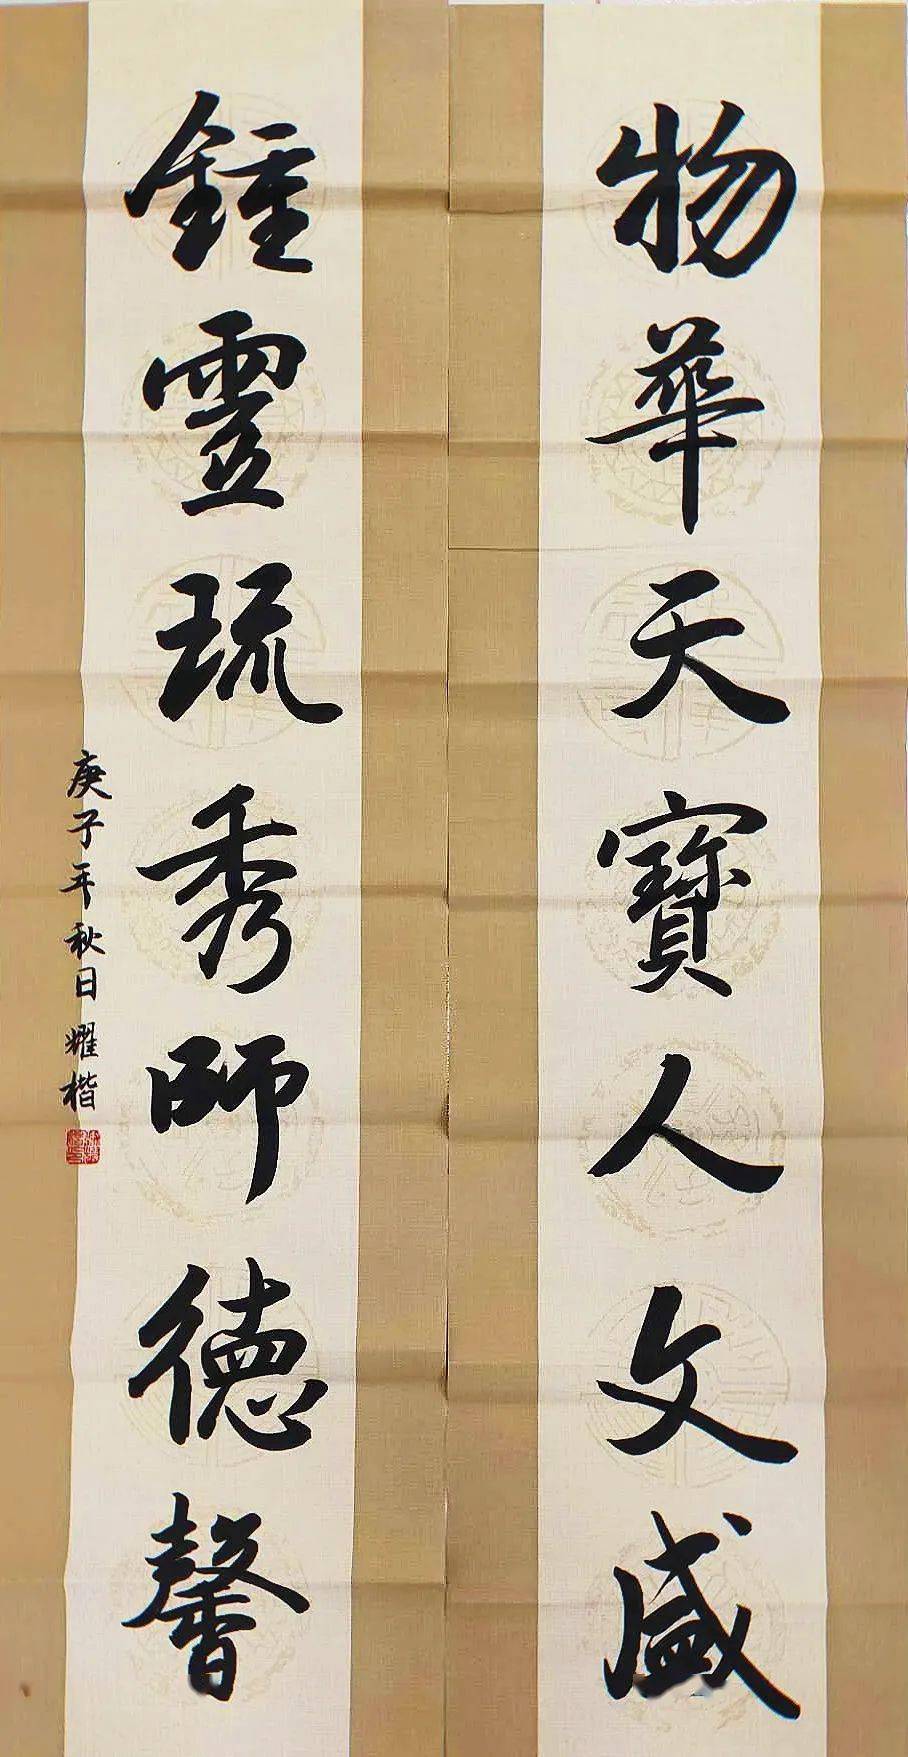 物華天寶人文盛
鍾靈珫秀師德馨
庚子年秋日耀楷